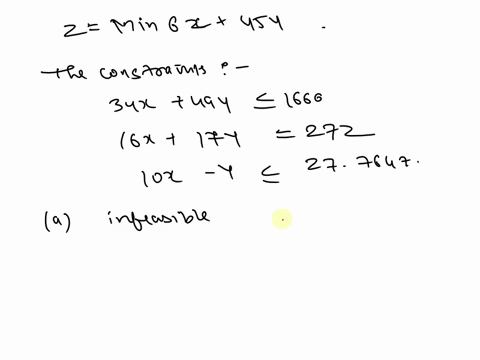 z = Min 6x + 45y .
The constraints :-
34x + 49y ≤ 1666
16x + 17y = 272
10x - y ≤ 27.7647.
(a) infeasible